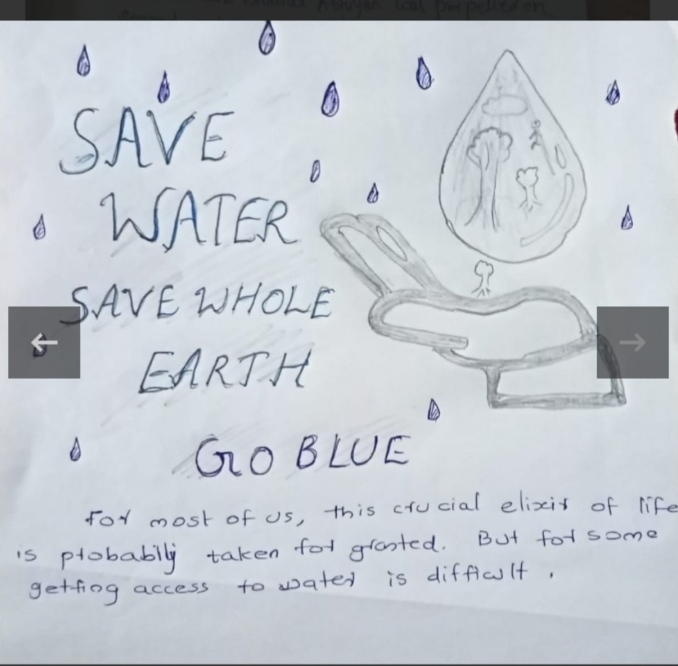 SAVE
WATER
SAVE WHOLE
EARTH
GO BLUE
For most of us, this crucial elixir of life
is probabily taken for granted. But for some
getting access to water is difficult.